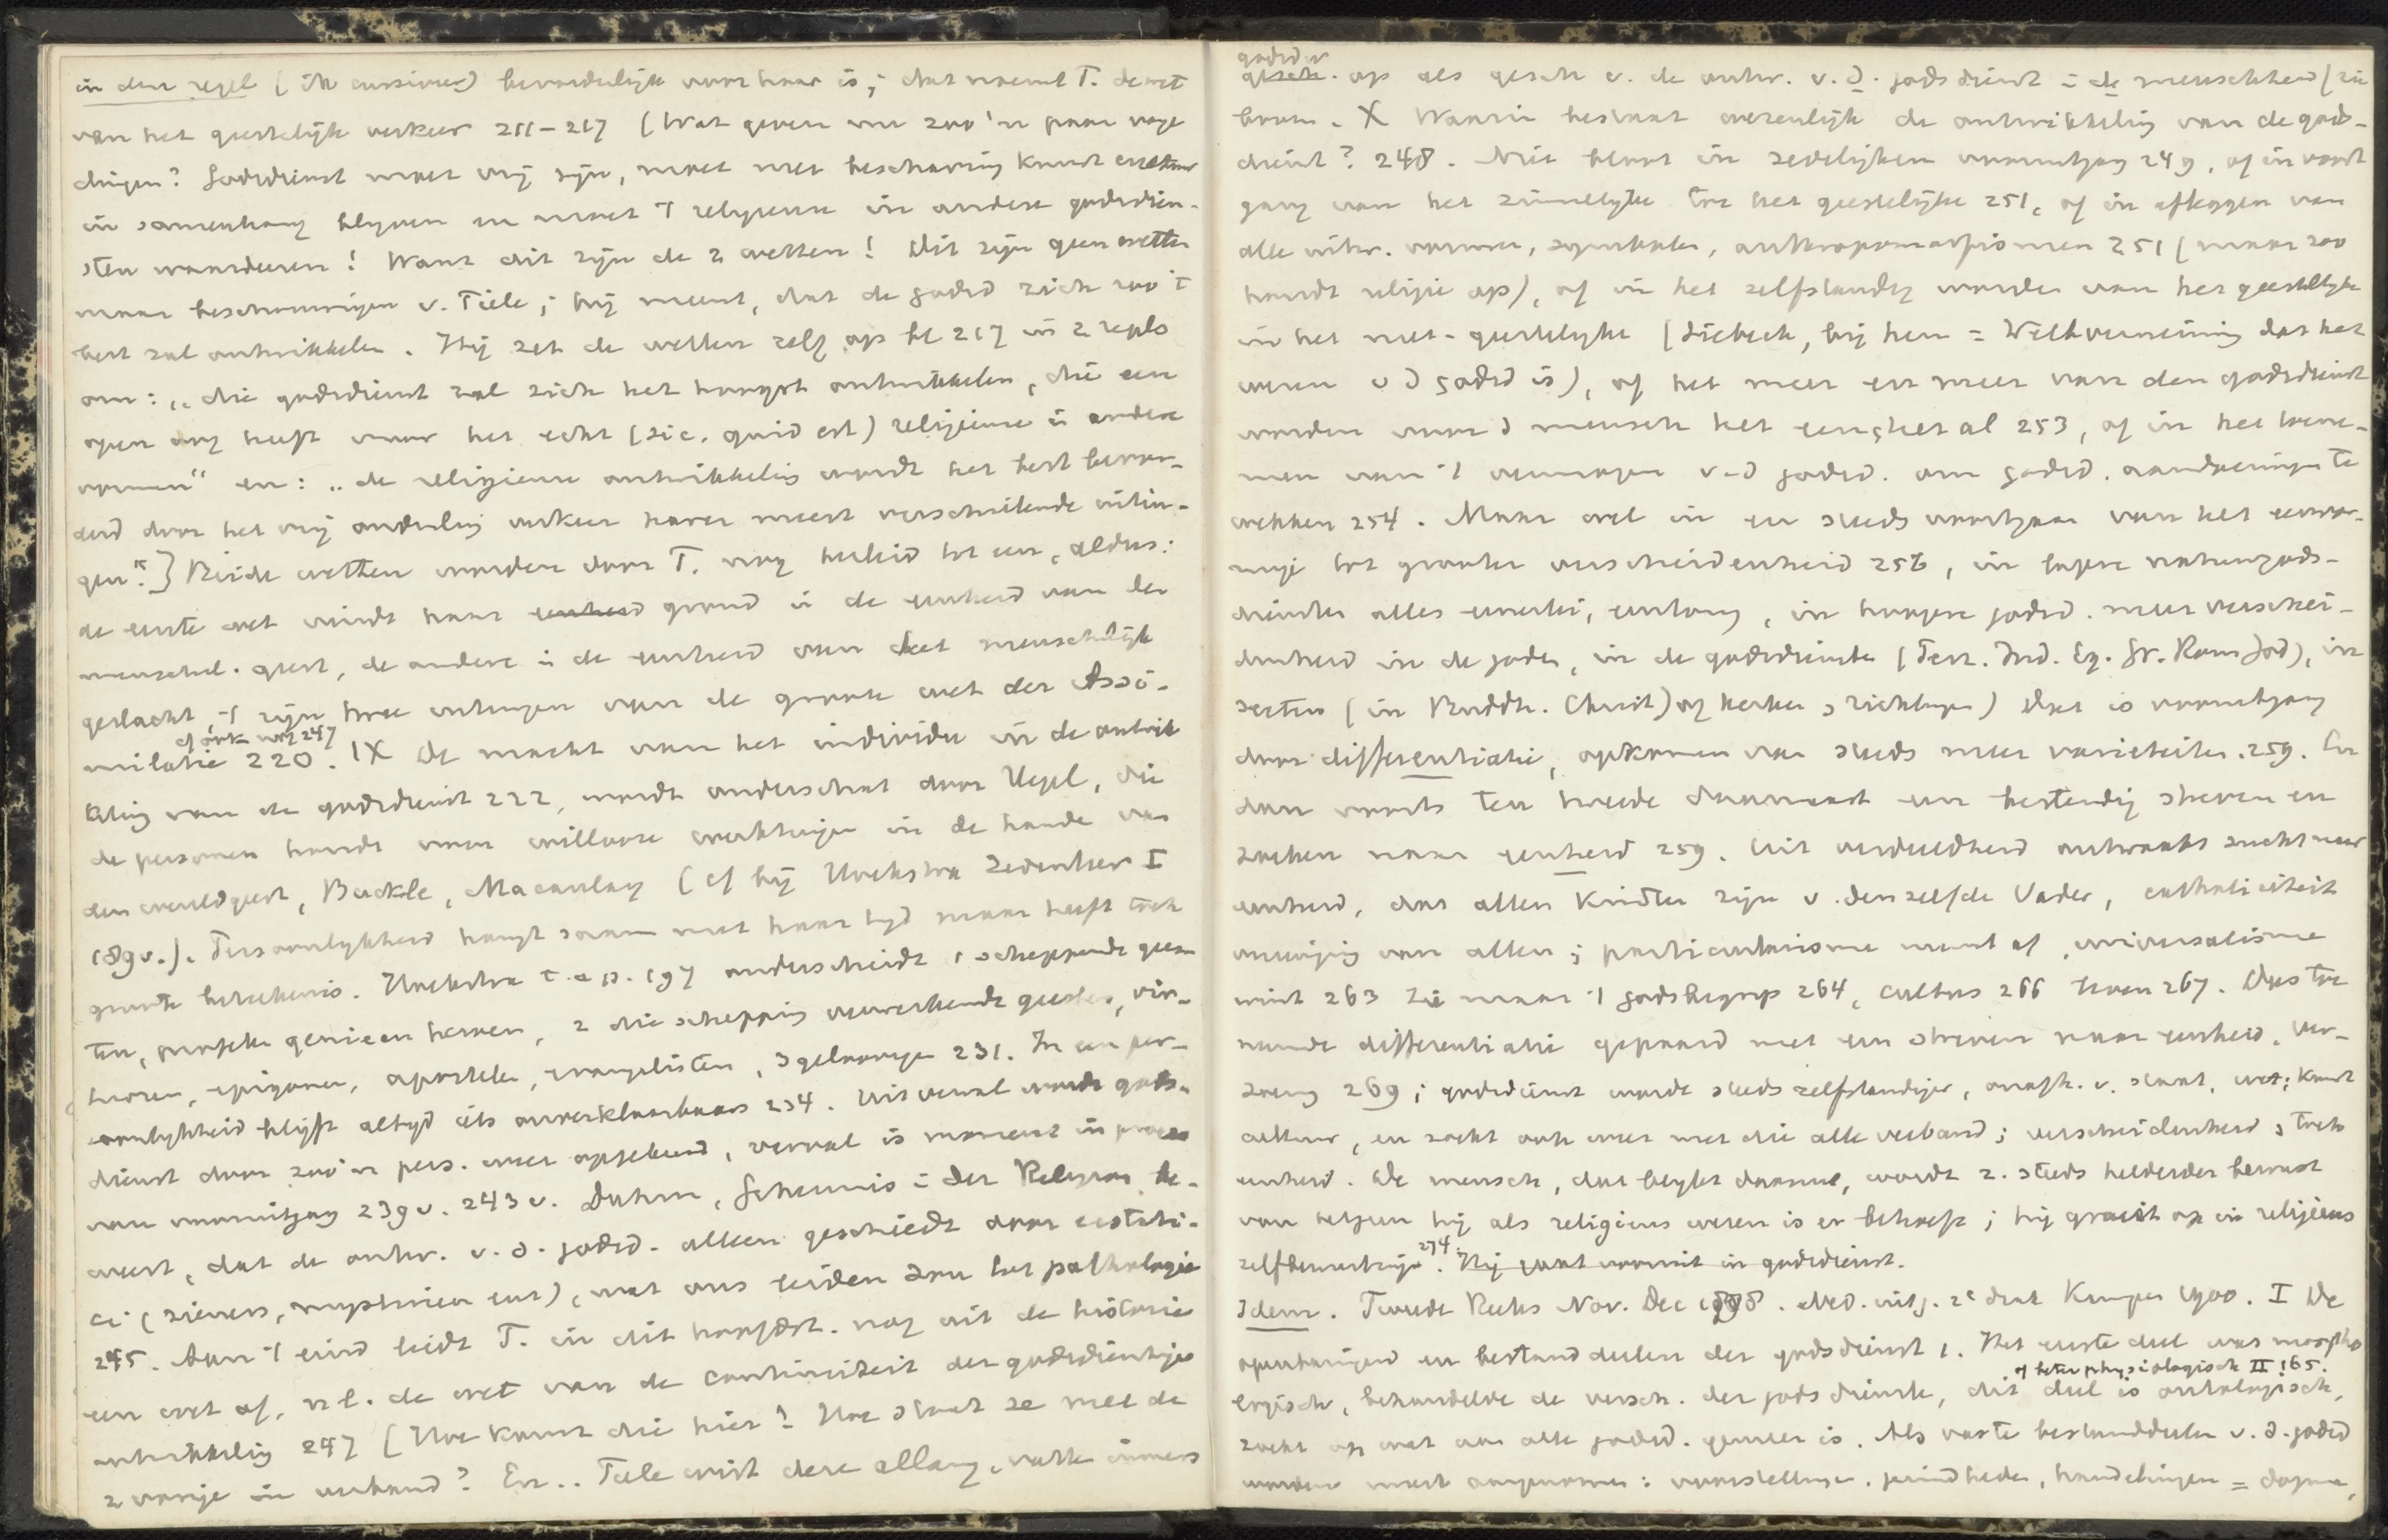 in den regel (ik cursiveer) bevorderlijk voor haar is; dat noemt T. de wet
van het geestelijk verkeer 211-217 (Wat geven nu zoo'n paar vage
dingen? Godsdienst moet vrij zijn, moet met beschaving kunst
in samenhang blijven en moet 't religieuse in andere godsdien-
sten waardeeren! Want dit zijn de 2 wetten! Dit zijn geen wetten
maar beschouwingen v. Tiele; hij meent, dat de godsd zich zoo 't
best zal ontwikkelen. Hij zet de wetten zelf op bl 217 in 2 regels
om: „die godsdienst zal zich het hoogst ontwikkelen, die een
open oog heeft voor het echt (sic, quid est) religieuse in andere
vormen" en: „de religieuse ontwikkeling wordt het best bevor-
derd door het vrij onderling verkeer harer meest verschillende uitin-
gen".] Beide wetten worden door T. nog herleid tot een, aldus:
de eerste wet vindt haar eenheid grond in de eenheid van den
menschel. geest, de andere in de eenheid van het menschelijk
geslacht, 't zijn twee uitingen van de groote wet der Assi-
cf ook nog 247
milatie 220. IX De macht van het individu in de ontwik
keling van de godsdienst 222, wordt onderschat door Hegel, die
de personen houdt voor willooze werktuigen in de hande van
den wereldgeest, Buckle, Macaulay (cf bij Hoekstra Zedenleer I
189v.). Persoonlijkheid hangt saam met haar tijd maar heeft toch
groote beteekenis. Hoekstra t.a.p. 197 onderscheidt 1 scheppende gees
ten, profeten genieen heroen, 2 die schepping verwerkende geesten, vir-
tuozen, epigonen, apostelen, evangelisten, 3 geloovigen 231. In een per-
soonlijkheid blijft altijd iets onverklaarbaars 234. Uit verval wordt gods-
dienst door zoo'n pers. weer opgebeurd, verval is moment in proces
van vooruitgang 239v. 243v. Duhm, Geheimnis in der Religion be-
weert, dat de ontw. v. d. godsd. alleen geschiedt door ecstati-
ci (zieners, mystieken enz), wat ons leiden zou tot pathologie
245. Aan 't eind leidt T. in dit hoofdst. nog uit de historie
een wet af, nl. de wet van de continuiteit der godsdienstige
ontwikkeling 247 [Hoe komt die hier? Hoe staat ze met de
2 vorige in verband? En.. Tiele wist deze allang, vatte immers
godsd
gesch. op als gesch v. de ontw. v. d. godsdienst in de menschheid (zie
boven. X Waarin bestaat wezenlijk de ontwikkeling van de gods-
dienst? 248. Niet bloot in zedelijken vooruitgang 249, of in voort
gang van het zinnelijke tot het geestelijke 251, of in afleggen van
alle uitw. vormen, symbolen, anthropomorphismen 251 (maar zoo
houdt religie op), of in het zelfstandig worden van het geestelijke
in het niet-geestelijke (Siebeck, bij hem = Weltverneinung dat het
wezen v d godsd is), of het meer en meer van den godsdienst
worden voor d mensch het een en het al 253, of in het toene-
men van 't vermogen v-d godsd. om godsd. aandoeningen te
wekken 254. Maar wel in een steds voortgaan van het eenvor-
mige tot grooter verscheidenheid 256, in lagere natuurgods-
diensten alles eenerlei, eentonig, in hoogere godsd. meer verschei-
denheid in de goden, in de godsdiensten (Perz. Ind. Eg. Gr. Rom God), in
secten (in Buddh. Christ) of kerken & richtingen) Dat is vooruitgang
door differentiatie, opkomen van steeds meer varieteiten. 259. En
dan voorts ten tweede daarnaast een bestendig streven en
zoeken naar eenheid 259. Uit verdeeldheid ontwaakt zucht naar
eenheid, dat allen kind'ren zijn v. denzelfde Vader, catholiciteit
vereenigig van allen; particularisme neemt af, universalisme
wint 263 Zie maar 't godsbegrip 264, cultus 266 leven 267. Dus toe
nemende differentiatie gepaard met een streven naar eenheid, ver-
zoeng 269; godsdienst wordt steeds zelfstandiger, onafh. v. staat, wet, kunst
cultuur, en zoekt ook weer met die alle verband; verscheidenheid & toch
eenheid. De mensch, dat blijkt daaruit, wordt z. steeds helderder bewust
van hetgeen hij als religieus wezen is en behoeft; hij groeit op in religieus
zelfbewustzijn. 274. Hij gaat vooruit in godsdienst.
Idem. Tweede Reeks Nov. Dec 1898. Ned. uitg. 2e druk Kampen 1900. I De
openbaringen en bestanddeelen der godsdienst 1. Het eerste deel was morpho
of beter physiologisch II 165.
logisch, behandelde de versch. der godsdiensten, dit deel is ontologisch,
zoekt op wat aan alle godsd. gemeen is. Als vaste bestanddeelen v. d. godsd
worden meest aangenomen: voorstellingen, gezindheden, handelingen = dogma,